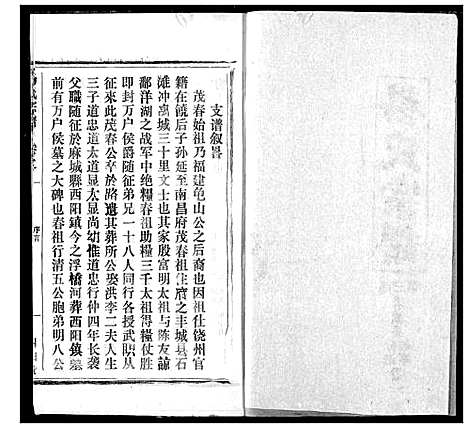 支谱叙畧
茂春始祖乃福建龟山公之后裔也因祖仕饶州官
籍在饒后子孙延至南昌府茂春祖住府之丰城县石
滩冲离城三十里文士也其家殷富明太祖与陈友諒
鄱洋湖之战军中绝糧春祖助糧三千太祖得糧仗胜
即封万户侯爵随征弟兄一十八人同行各授武职从
征来此茂春公卒於路遗其葬所公娶洪李二夫人生
三子道忠道太道显太显尚幼惟道忠行仲四年长袭
父職随征於麻城縣西阳鎮今之浮橋河葬西阳鎮墓
前有万户侯墓之大碑也春祖行清五公胞弟明八公
序言